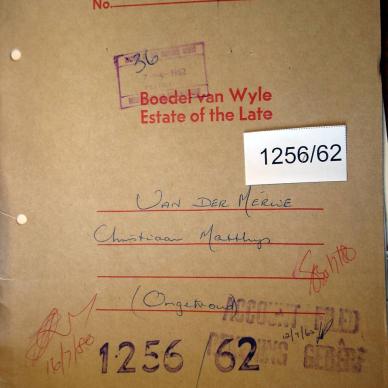 No.
36
Boedel van Wyle
Estate of the Late
1256/62
VAN DER MERWE
Christiaan Matthys
(Ongetroud)
ACCOUNT FILED
GEDEPS
16/7/80
1256/62